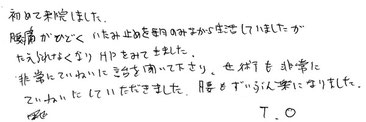 初めて来院しました。
腰痛がひどく いたみ止めを毎日のみながら生活していましたが
たえられなくなり HPをみて来ました。
非常にていねいに 話を聞いて下さり、 も 非常に
ていねいにしていただきました。腰もずいぶん楽になりました。
T.O